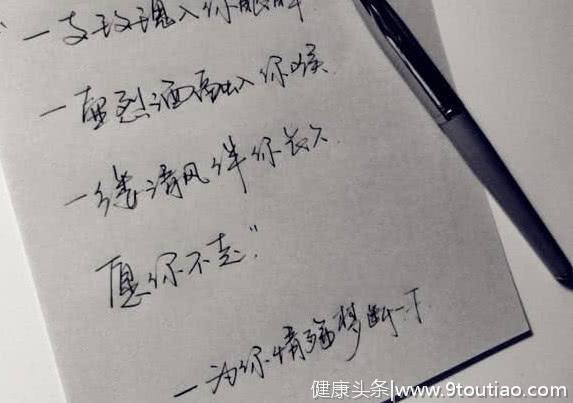 "一支玫瑰入你眼眸
一壶烈酒入你喉
一缕清风伴你长久
愿你不走"
—为你情殇梦断一下
健康头条|www.9toutiao.com